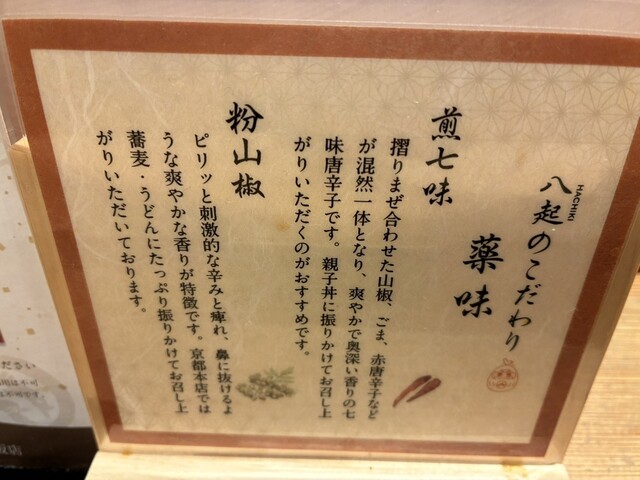 八起のこだわり
HACHIKI
薬味
煎七味
摺りまぜ合わせた山椒、ごま、赤唐辛子など
が混然一体となり、爽やかで奥深い香りの七
味唐辛子です。親子丼に振りかけてお召し上
がりいただくのがおすすめです。
粉山椒
ピリッと刺激的な辛みと痺れ、鼻に抜けるよ
うな爽やかな香りが特徴です。京都本店では
蕎麦・うどんにたっぷり振りかけてお召し上
がりいただいております。
ださい